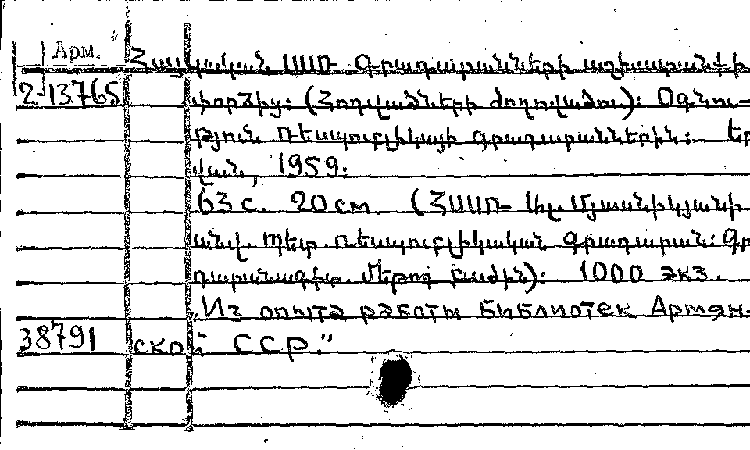 Арм. Հայկական ՍՍՌ գրադարանների աշխատանքի
2-13765 փորձից: (Հոդվածների ժողովածու): Օգնու-
թյուն ռեսպուբլիկայի գրադարաններին: Եր
վան, 1959:
63 с. 20 см. (ՀՍՍՌ Ալ. Մյասնիկյանի
անվ. պետ. ռեսպուբլիկական գրադարան: Գր
դարանագիտ. մեթոդ բաժին): 1000 экз.
"Из опыта работы библиотек Армян-
38791 ской ССР."